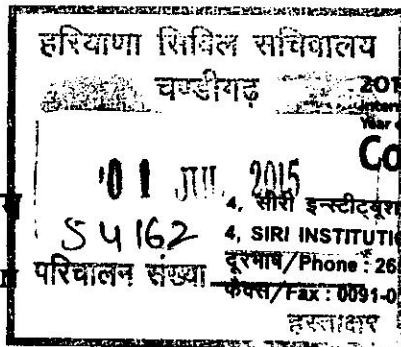 हरियाणा सिविल सचिवालय
चण्डीगढ़
201
Intern
Year
Co
01 JUL 2015
54162
4, सीरी इन्स्टीट्यूश
4, SIRI INSTITUTI
परिचालन संख्या
दूरभाष/Phone : 26
फैक्स/Fax : 0091-0
हस्ताक्षर